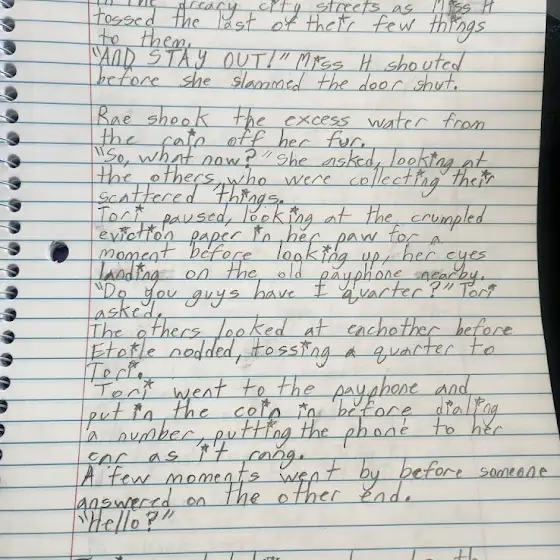 in the dreary city streets as Miss H
tossed the last of their few things
to them.
"AND STAY OUT!" Miss H shouted
before she slammed the door shut.
Rae shook the excess water from
the rain off her fur.
"So, what now?" She asked, looking at
the others, who were collecting their
scattered things.
Tori paused, looking at the crumpled
eviction paper in her paw for a
moment before looking up, her eyes
landing on the old payphone nearby.
"Do you guys have I quarter?" Tori
asked.
The others looked at eachother before
Etoile nodded, tossing a quarter to
Tori.
Tori went to the payphone and
put in the coin in before dialing
a number, putting the phone to her
ear as it rang.
A few moments went by before someone
answered on the other end.
"Hello?"